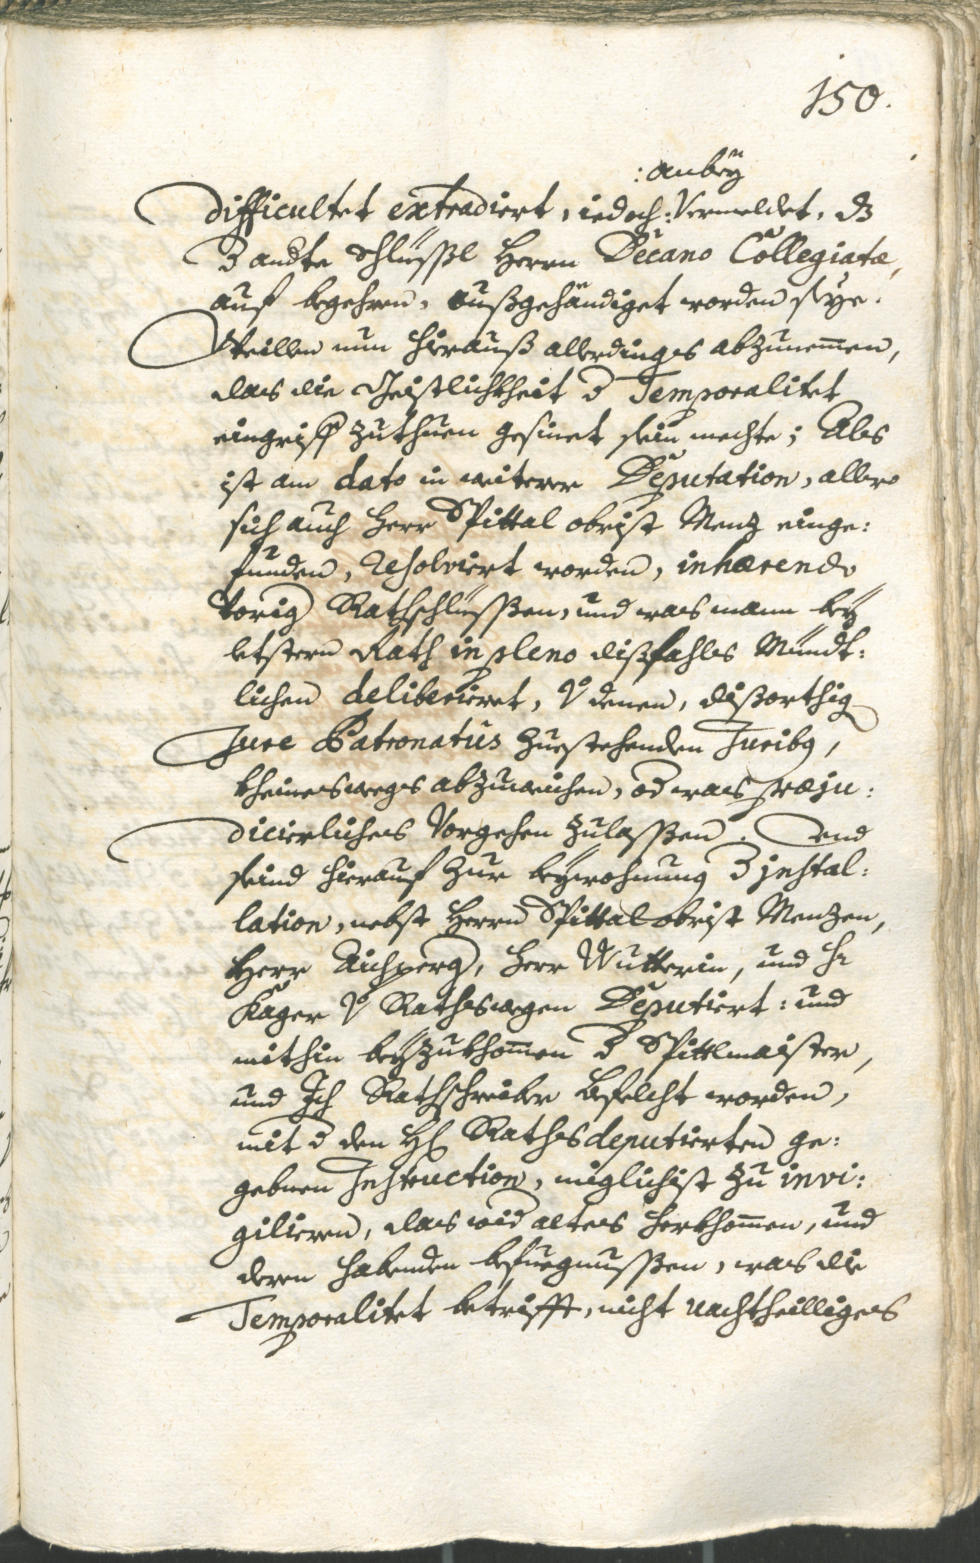 150.
: anbeÿ
Difficultet extradiert, iedoch: Vermeldet, dz
d andte schlüssl Herrn Decano Collegiatæ,
auf begehren, außgehändiget worden seye.
Weillen nun hierauß allerdinges abzunemmen,
das die Geistlichkheit d Temporalitet
eingriff zuthuen gesinnet sein mechte; Als
ist am dato in weiterer Deputation, allwo
sich auch Herr Spittal obrist Menz einge:
funden, resolviert worden, inhærendo
Vorig Rathschlüssen, und was mann beÿ
letstern Rath in pleno dißfahls Mündt:
lichen deliberieret, V denen, disorthig
Jure Patronatus zuestehenden Juribg,
kheinesweegs abzuweichen, od was præju:
dicierliches Vorgehen zulassen. Und
seind hierauf zur beÿwohnung d jnstal:
lation, nebst Herrn Spittal obrist Menzen,
Herr Aichperg, Herr Wütterin, und H
Kager V Rathswegen Deputiert: und
mithin beÿzukhommen d Spittlmaister,
und Ich Rathschreiber befelcht worden,
mit d den HH Rathsdeputierten ge:
gebnen Instruction, miglichist zu invi:
gilieren, das wid altes herkhommen, und
deren habenden befuegnussen, was die
Temporalitet betrifft, nicht nachtheilliges